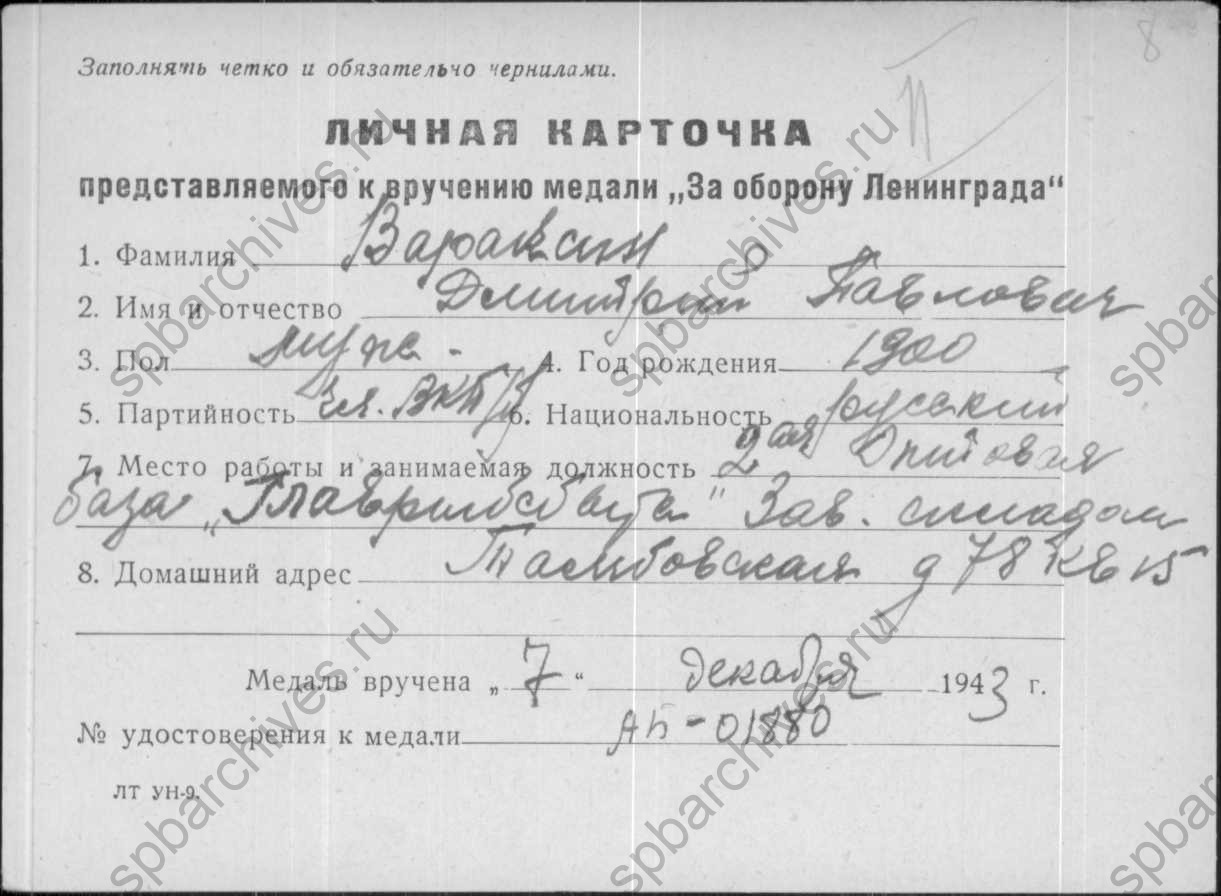 8
Заполнять четко и обязательно чернилами.
П
ЛИЧНАЯ КАРТОЧКА
представляемого к вручению медали „За оборону Ленинграда“
1. Фамилия Вараксин
2. Имя и отчество Дмитрий Павлович
3. Пол муж. 4. Год рождения 1900
5. Партийность чл. ВКП/б 6. Национальность русский
7. Место работы и занимаемая должность 2ая Оптовая
база „Главрыбсбыта" Зав. складом
8. Домашний адрес Тамбовская д 78 кв 15
Медаль вручена „7“ декабря 1943 г.
№ удостоверения к медали АБ-01880
ЛТ УН-9.
spbarchives.ru
spbarchives.ru
spbarchives.ru
spbarchives.ru
spbarchives.ru
spbar
spbar